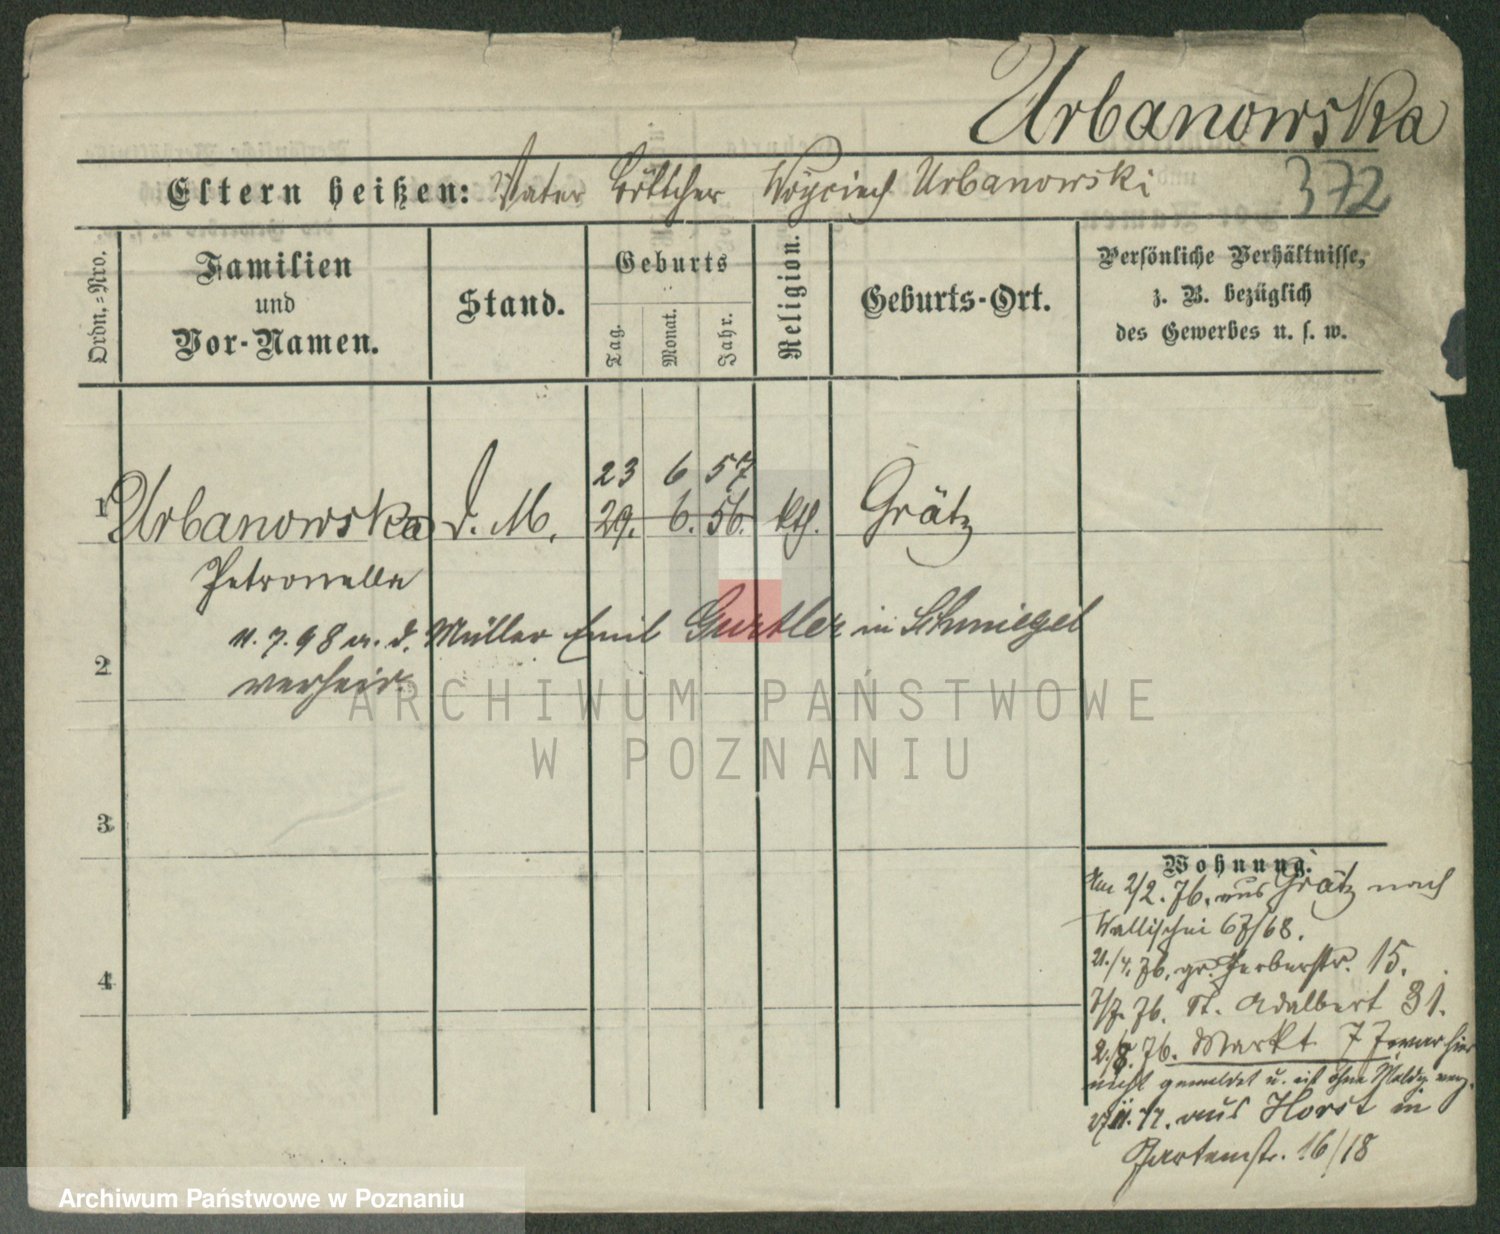 Urbanowska
372
Eltern heißen: Vater Böttcher Woyciech Urbanowski
Ordn.=Nro.
Familien
und
Vor-Namen.
Stand.
Geburts
Tag.
Monat.
Jahr.
Religion.
Geburts-Ort.
Persönliche Verhältnisse,
z. B. bezüglich
des Gewerbes u. s. w.
23 6 57
1 Urbanowska d. M. 29. 6. 56. kth. Grätz
Petronella
11. 7. 98 m. d. Müller Emil Gürtler in Schmiegel
2
verheir.
3
4
Wohnung.
Am 2/2. 76. aus Grätz nach
Wallischei 67/68.
21./4. 76. gr. Gerberstr. 15.
7/7. 76. St. Adalbert 31.
2./8. 76. Markt 7 war hier
nicht gemeldet u. ist ohne Meldg.
11. 77. aus Horst in
Gartenstr. 16/18
ARCHIWUM PAŃSTWOWE
W POZNANIU
Archiwum Państwowe w Poznaniu